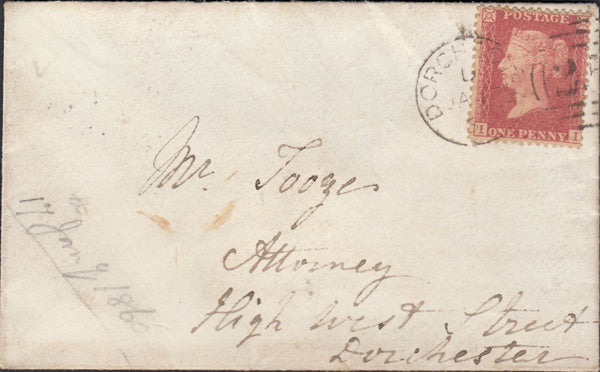 POSTAGE
I ONE PENNY I
DORCH
JA
Mr. Tooges
Attorney
High West Street
Dorchester
17th Jany 186